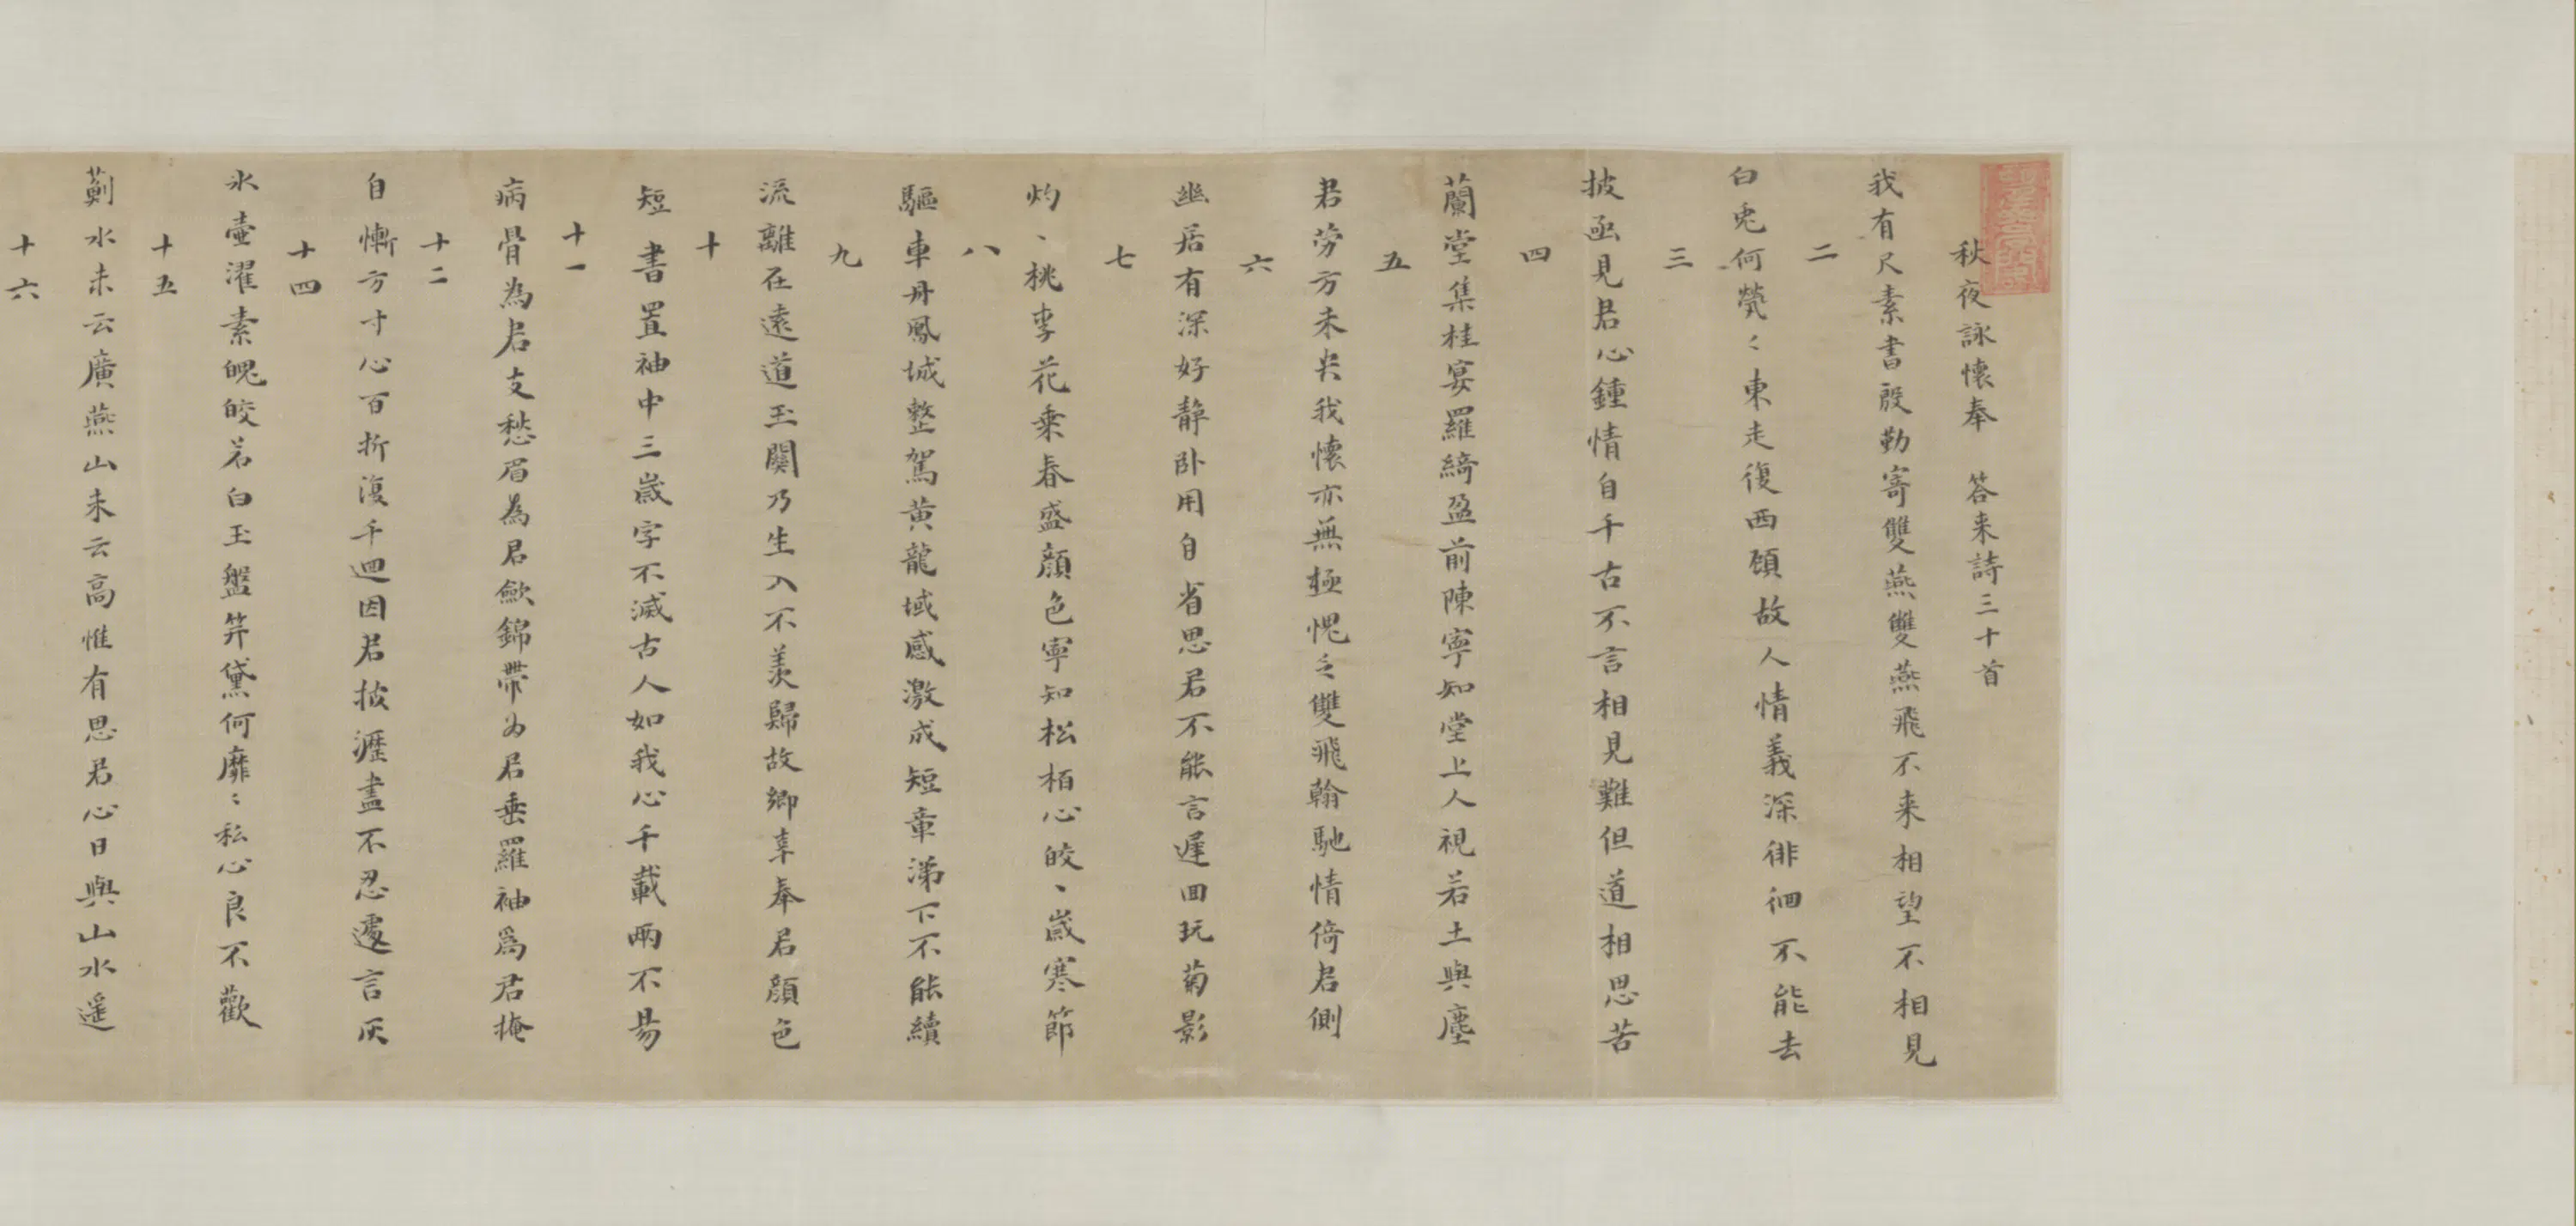 秋夜詠懷奉　答来詩三十首
我有尺素書殷勤寄雙燕雙燕飛不来相望不相見
二
白兎何煢〻東走復西顧故人情義深徘徊不能去
三
披函見君心鍾情自千古不言相見難但道相思苦
四
蘭堂集桂宴羅綺盈前陳寧知堂上人視若土與塵
五
君勞方未央我懷亦無極愧乏雙飛翰馳情倚君側
六
幽居有深好静卧用自省思君不能言遲回玩菊影
七
灼丶桃李花乗春盛顔色寧知松栢心皎丶歲寒節
八
驅車丹鳳城整駕黄龍域感激成短章涕下不能續
九
流離在遠道玉關乃生入不羨歸故鄉幸奉君顔色
十
短書置袖中三歲字不滅古人如我心千載兩不易
十一
病骨為君支愁眉為君歛錦帶為君垂羅袖爲君掩
十二
自慚方寸心百折復千迴因君披瀝盡不忍遽言灰
十四
氷壷濯素魄皎若白玉盤笄黛何靡〻私心良不歡
十五
薊水未云廣燕山未云高惟有思君心日與山水遥
十六